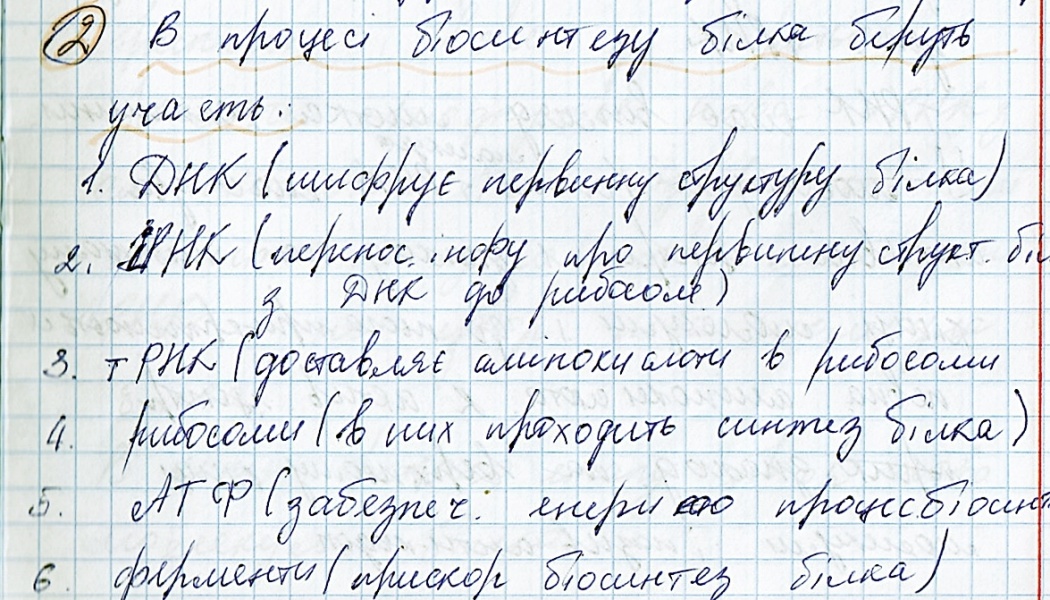 2 В процесі біосинтезу білка беруть
участь:
1. ДНК (шифрує первинну структуру білка)
2. ІРНК (перенос. інфу про первинну структ. біл
з ДНК до рибосом)
3. тРНК (доставляє амінокислоти в рибосоми
4. рибосоми (в них проходить синтез білка)
5. АТФ (забезпеч. енергією процес біосинт
6. ферменти (прискор біосинтез білка)